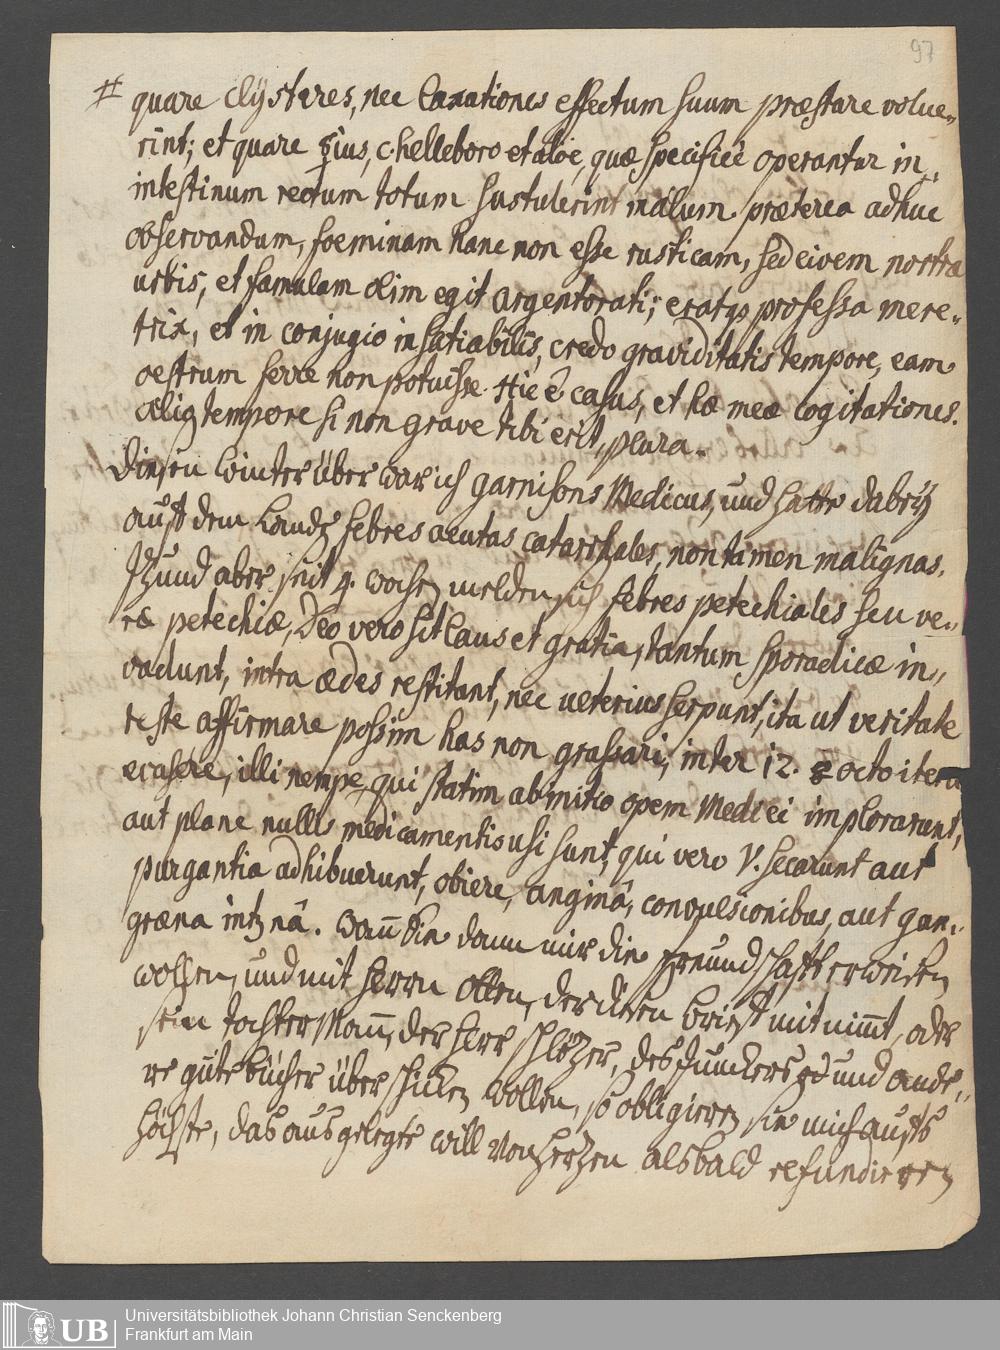 97
# quare clÿsteres, nec laxationes effectum suum præstare volue„
rint; et quare ☿ius, c. helleboro et aloe, quæ specificè operantur in„
intestinum rectum totum sustulerint malum. præterea adhuc
observandum, foeminam hanc non esse rusticam, sed civem nostræ
urbis, et famulam olim egit argentorati; eratqз professa mere„
trix, et in conjugio insatiabilis, credo graviditatis tempore, eam
oestrum ferre non potuisse. Hic ē casus, et hæ meæ cogitationes.
aliq tempore si non grave tibi erit, plura.
Diesen winter über war ich garnisons Medicus, und hatte dabeÿ
auff dem Lande febres acutas catarrhales, non tamen malignas.
Jtzund aber seit 4. wochen melden sich febres petechiales seu ve„
ræ petechiæ, Deo vero sit laus et gratia, tantum sporadicæ in„
vadunt, intra ædes restitant, nec ulterius serpunt, ita ut veritate
teste affirmare possim has non grassari; inter 12. octo item
evasere, illi nempe, qui statim ab initio opem Medici implorarunt,
aut plane nullis medicamentis usi sunt, qui vero V. secarunt aut
purgantia adhibuerunt, obiere, anginâ, convulsionibus, aut gan„
græna intnâ. Wan̄ Sie dann mir die freundschafft erweisen
wollen, und mit Herrn Otten, der diesen brieff mit nim̄t, oder
sein tochter Man̄, der Herr Schlözer, des Junckers und ande„
re gute bücher über schicken wollen, so obligieren sie mich auffs
höchste, das ausgelegte will von Hertzen alsbald refundieren
Universitätsbibliothek Johann Christian Senckenberg
Frankfurt am Main
UB